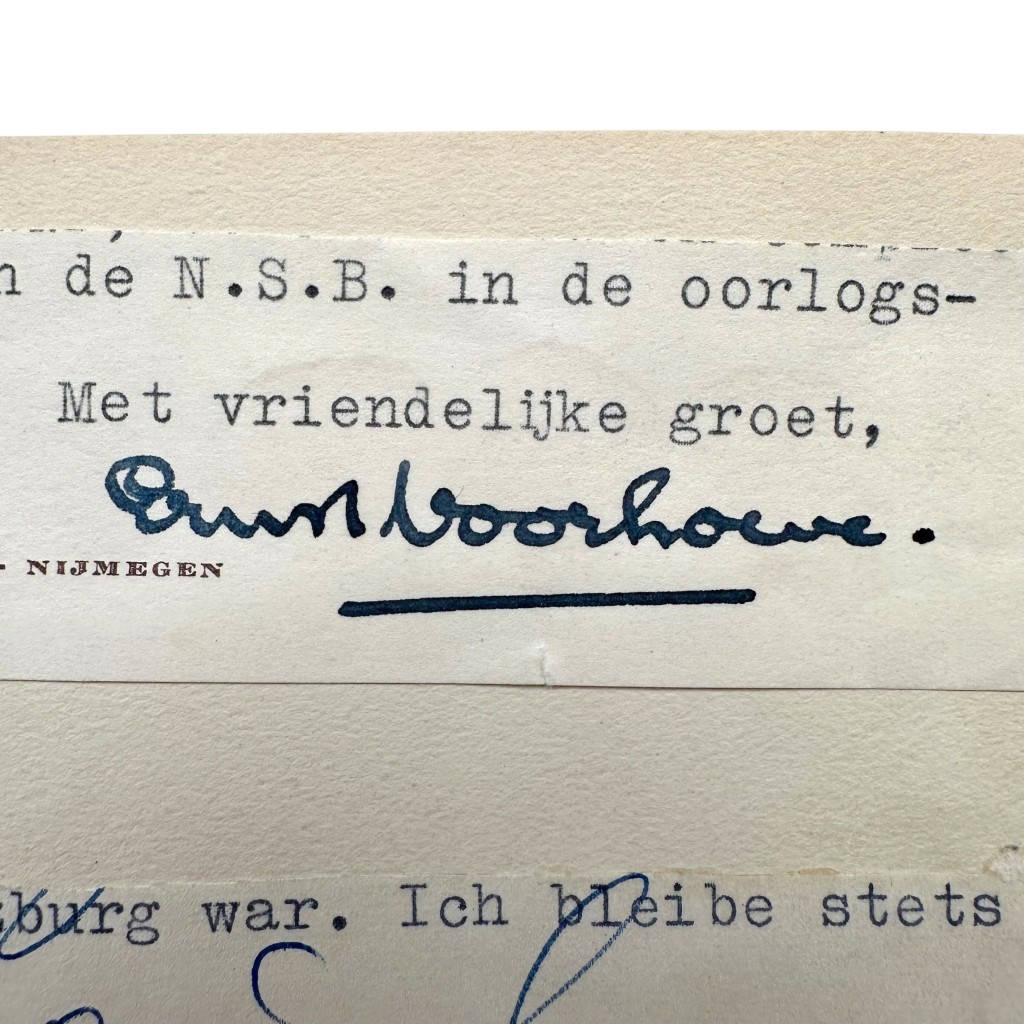 n de N.S.B. in de oorlogs-
Met vriendelijke groet,
Ernst Voorhoeve.
- NIJMEGEN
zburg war. Ich bleibe stets